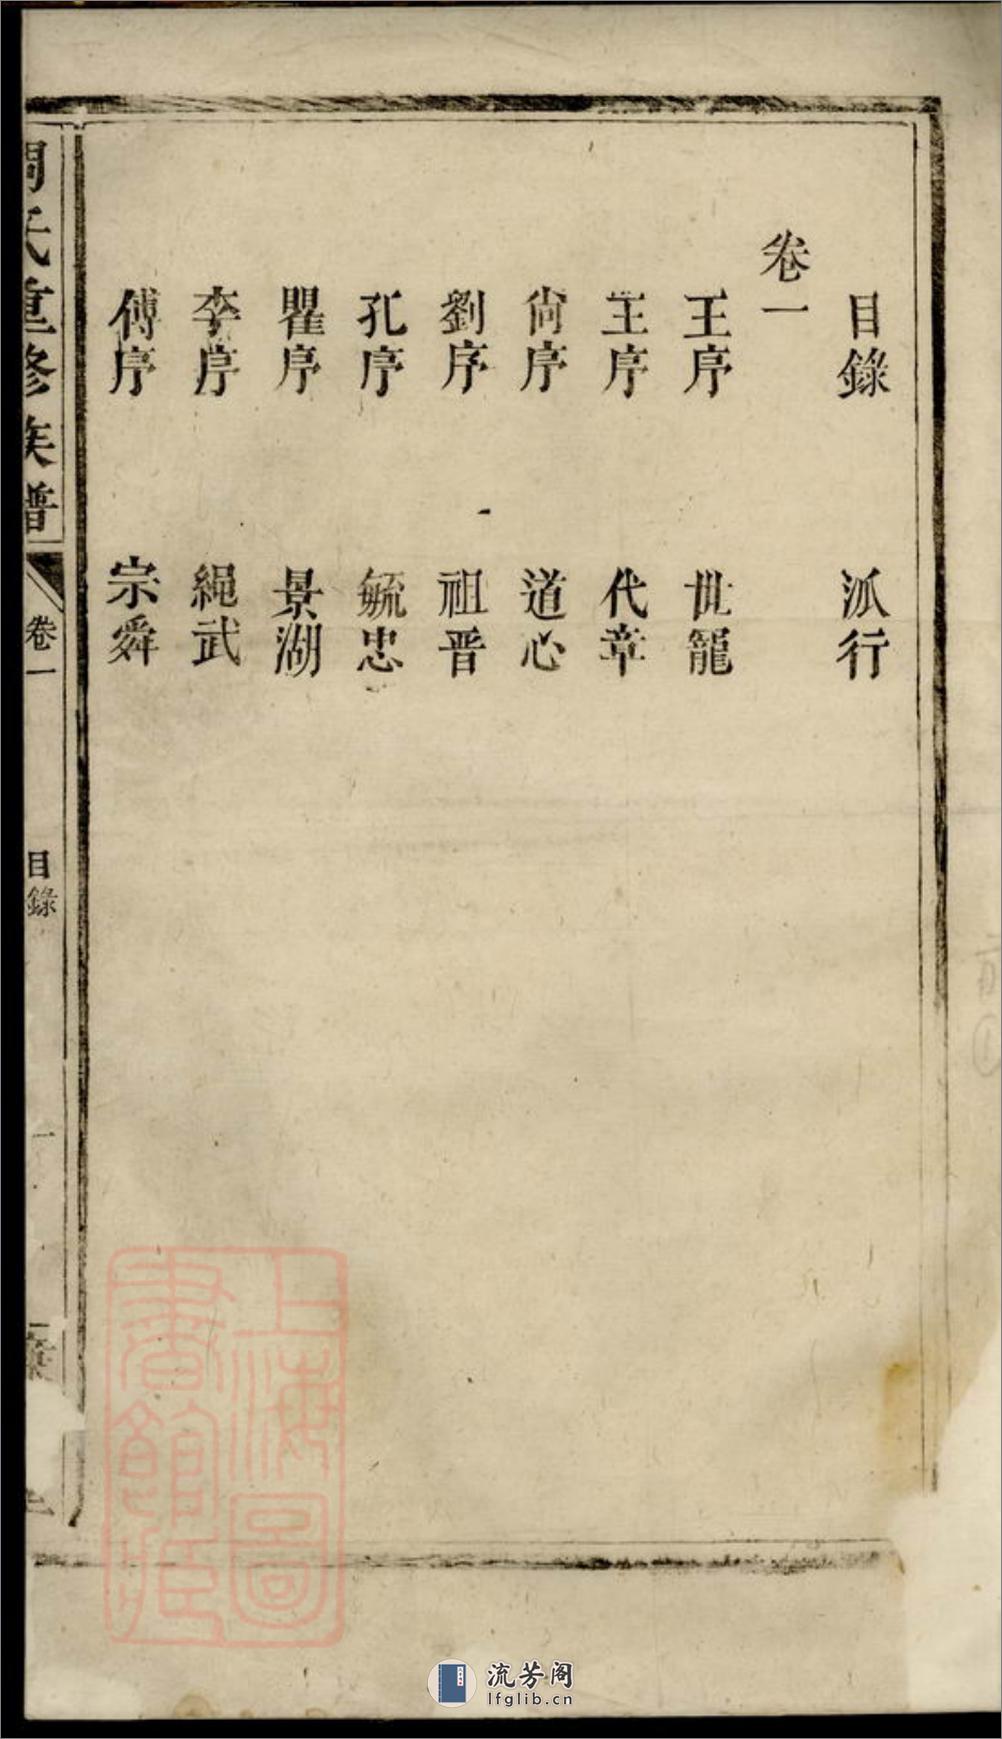 目錄 派行
卷一
王序 世寵
王序 代章
尙序 道心
劉序 祖晋
孔序 毓忠
瞿序 景湖
李序 繩武
傅序 宗舜
周氏重修族譜 卷一 目錄 一
上海圖書館藏
流芳阁
lfglib.cn